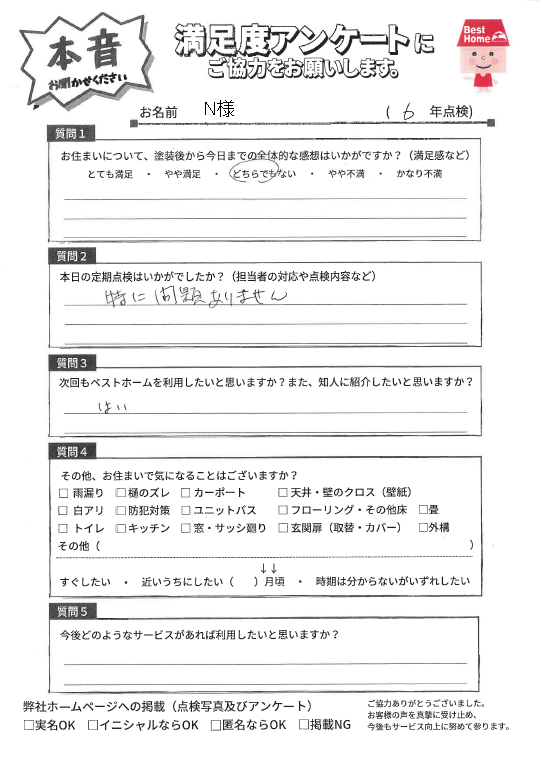 本音
お聞かせください
満足度アンケートに
ご協力をお願いします。
Best
Home
お名前 N様 ( 6 年点検)
質問1
お住まいについて、塗装後から今日までの全体的な感想はいかがですか？（満足感など）
とても満足 ・ やや満足 ・ どちらでもない ・ やや不満 ・ かなり不満
質問2
本日の定期点検はいかがでしたか？（担当者の対応や点検内容など）
特に問題ありません
質問3
次回もベストホームを利用したいと思いますか？また、知人に紹介したいと思いますか？
はい
質問4
その他、お住まいで気になることはございますか？
□ 雨漏り □ 樋のズレ □ カーポート □ 天井・壁のクロス（壁紙）
□ 白アリ □ 防犯対策 □ ユニットバス □ フローリング・その他床 □畳
□ トイレ □ キッチン □ 窓・サッシ廻り □ 玄関扉（取替・カバー） □外構
その他（ ）
↓↓
すぐしたい ・ 近いうちにしたい（ ）月頃 ・ 時期は分からないがいずれしたい
質問5
今後どのようなサービスがあれば利用したいと思いますか？
弊社ホームページへの掲載（点検写真及びアンケート）
□実名OK □イニシャルならOK □匿名ならOK □掲載NG
ご協力ありがとうございました。
お客様の声を真摯に受け止め、
今後もサービス向上に努めて参ります。